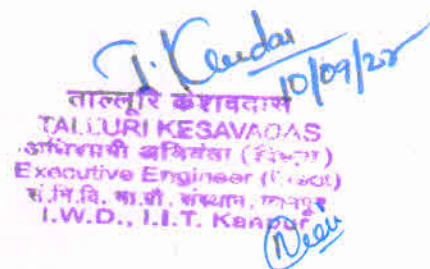 10/09/22
ताल्लूरि केशवदास
TALLURI KESAVADAS
अधिशासी अभियंता
Executive Engineer
सं.नि.वि. भा.प्रौ. संस्थान, कानपुर
I.W.D., I.I.T. Kanpur